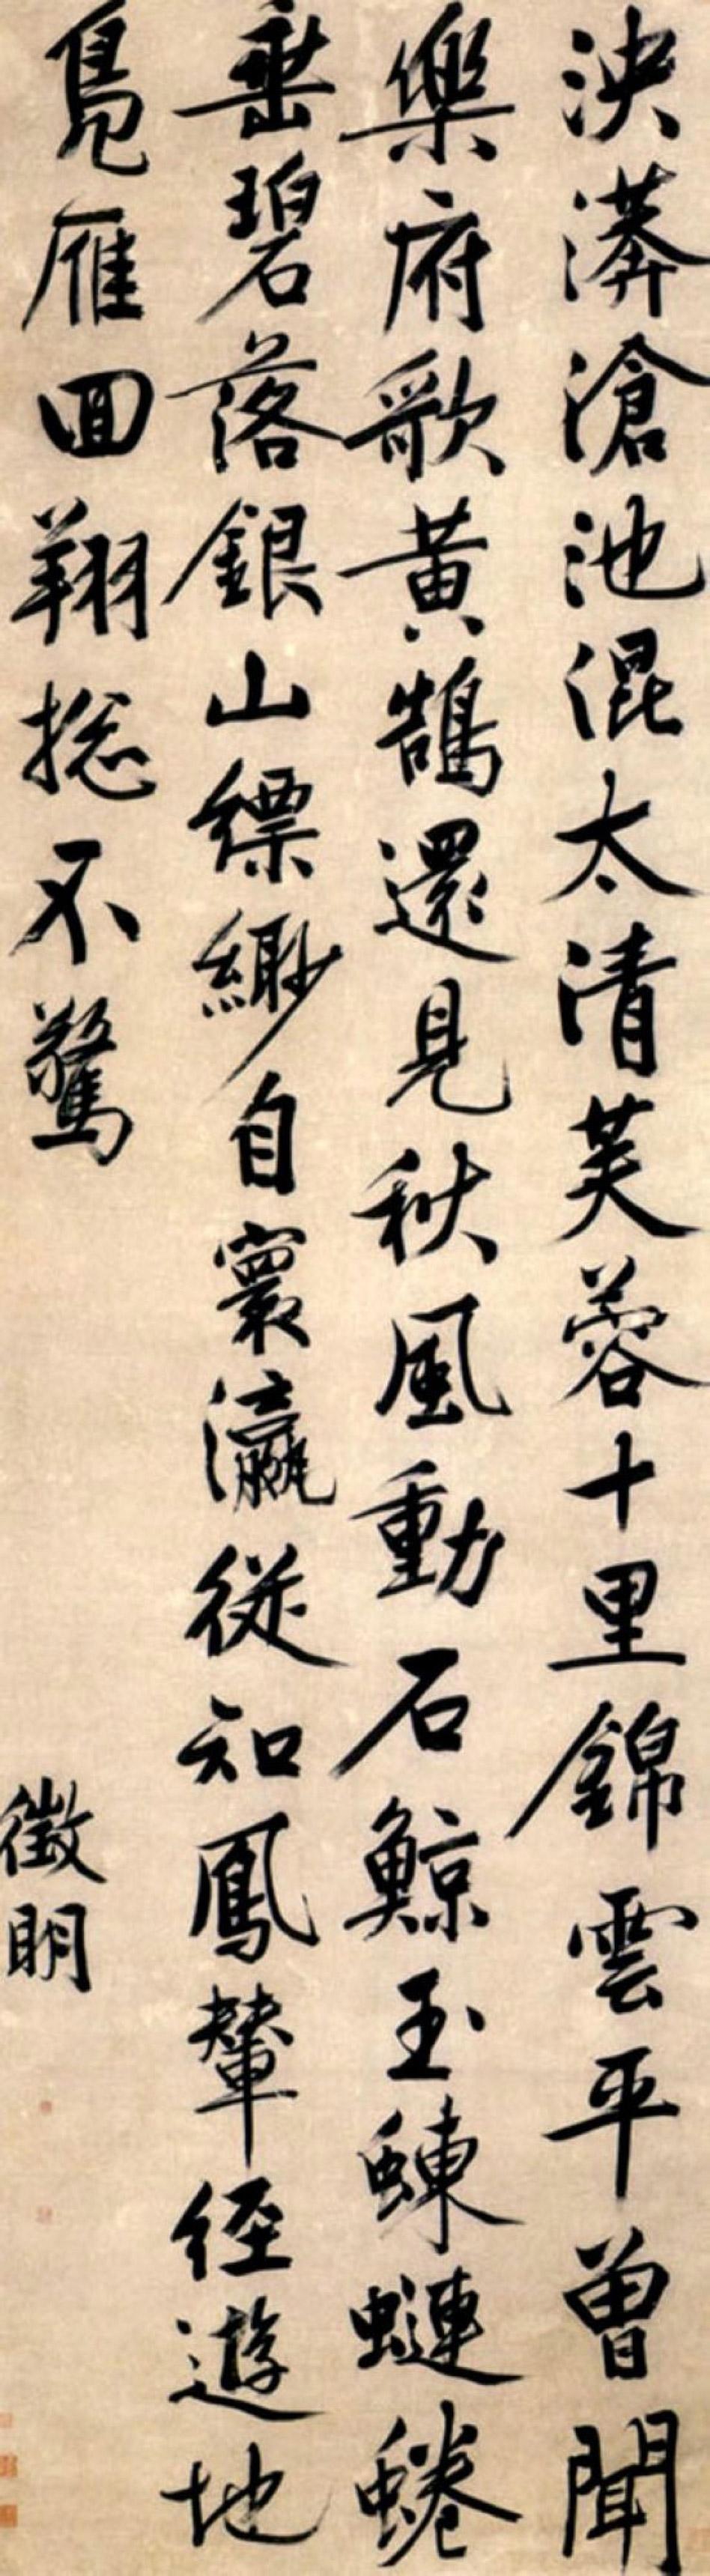 泱漭滄池混太清芙蓉十里錦雲平曾聞
樂府歌黃鵠還見秋風動石鯨玉蝀蜿蜷
垂碧落銀山縹緲自寰瀛從知鳳輦經遊地
鳧雁回翔捴不驚
徵明